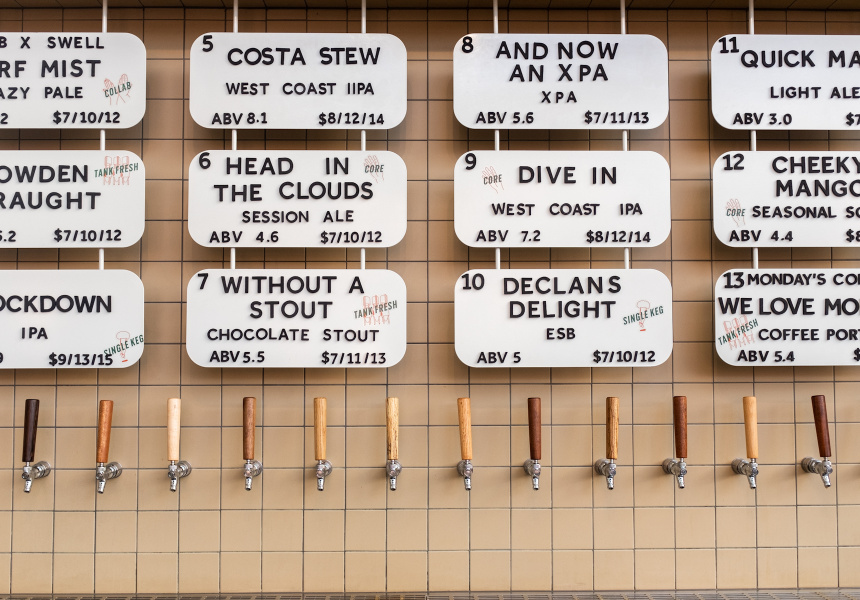 B X SWELL
RF MIST
AZY PALE
COLLAB
2 $7/10/12
OWDEN
RAUGHT
TANK FRESH
5.2 $7/10/12
OCKDOWN
IPA
SINGLE KEG
9 $9/13/15
5
COSTA STEW
WEST COAST IIPA
ABV 8.1 $8/12/14
6
HEAD IN
THE CLOUDS
CORE
SESSION ALE
ABV 4.6 $7/10/12
7
WITHOUT A
STOUT
TANK FRESH
CHOCOLATE STOUT
ABV 5.5 $7/11/13
8
AND NOW
AN XPA
XPA
ABV 5.6 $7/11/13
9
CORE
DIVE IN
WEST COAST IPA
ABV 7.2 $8/12/14
10
DECLANS
DELIGHT
SINGLE KEG
ESB
ABV 5 $7/10/12
11
QUICK MA
LIGHT ALE
ABV 3.0 $7
12
CHEEKY
MANGO
CORE
SEASONAL SO
ABV 4.4 $8
13
MONDAY'S CO
WE LOVE MO
TANK FRESH
COFFEE POR
ABV 5.4 $